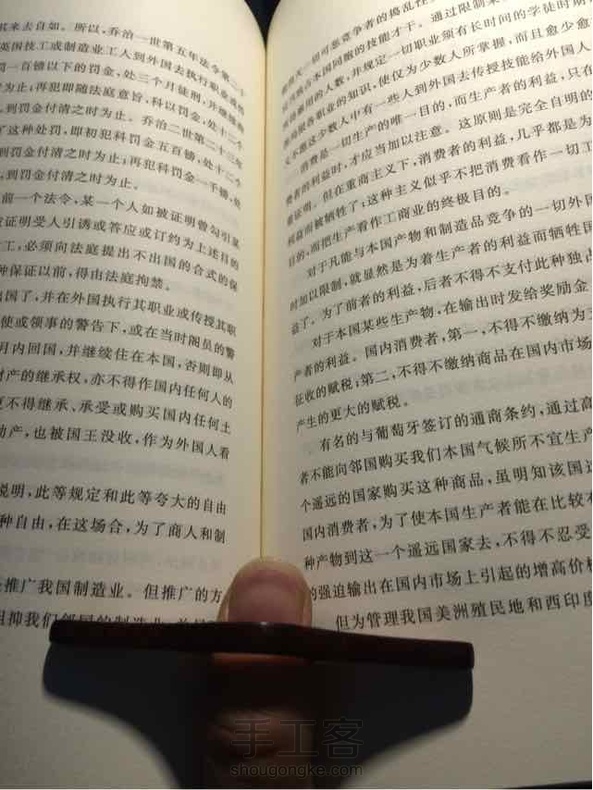 其来去自如。所以,乔治一世第五年法令第二十
英国技工或制造业工人到外国去执行职业或传
一百镑以下的罚金,处三个月徒刑,并继续拘
;再犯即随法庭意旨,科以罚金,处十二个
到罚金付清之时为止。乔治二世第二十三年
了这种处罚,即初犯科罚金五百镑,处十二个
到罚金付清之时为止;再犯科罚金一千镑,处
罚金付清之时为止。
前一个法令,某一个人如被证明曾勾引某
被证明受人引诱或答应或订约为上述目的
工,必须向法庭提出不出国的合式的保
种保证以前,得由法庭拘禁。
出国了,并在外国执行其职业或传授其职
使或领事的警告下,或在当时阁员的警
月内回国,并继续住在本国,否则即从
财产的继承权,亦不得作国内任何人的
更不得继承、承受或购买国内任何土
动产,也被国王没收,作为外国人看
说明,此等规定和此等夸大的自由
种自由,在这场合,为了商人和制
推广我国制造业。但推广的方
阻抑我们邻国的制造业
一切可恶竞争者的捣乱性
本国同胞的技能才干。通过限制
雇用的人数,并规定一切职业须有长时间的学徒时期
各职业的知识,使仅为少数人所掌握,而且愈少愈
又不愿这少数人中有一些人到外国去传授技能给外国人
消费是一切生产的唯一目的,而生产者的利益,只在
费者的利益时,才应当加以注意。这原则是完全自明的
要证明。但在重商主义下,消费者的利益,几乎都是为
利益而被牺牲了;这种主义似乎不把消费看作一切工
目的,而把生产看作工商业的终极目的。
对于凡能与本国产物和制造品竞争的一切外国
时加以限制,就显然是为着生产者的利益而牺牲国
益了。为了前者的利益,后者不得不支付此种独占
对于本国某些生产物,在输出时发给奖励金
产者的利益。国内消费者,第一,不得不缴纳为支
征收的赋税;第二,不得不缴纳商品在国内市场
产生的更大的赋税。
有名的与葡萄牙签订的通商条约,通过高
者不能向邻国购买我们本国气候所不宜生产
个遥远的国家购买这种商品,虽明知该国这
国内消费者,为了使本国生产者能在比较有
种产物到这一个遥远国家去,不得不忍受
的强迫输出在国内市场上引起的增高价格
但为管理我国美洲殖民地和西印度
手工客
shougongke.com